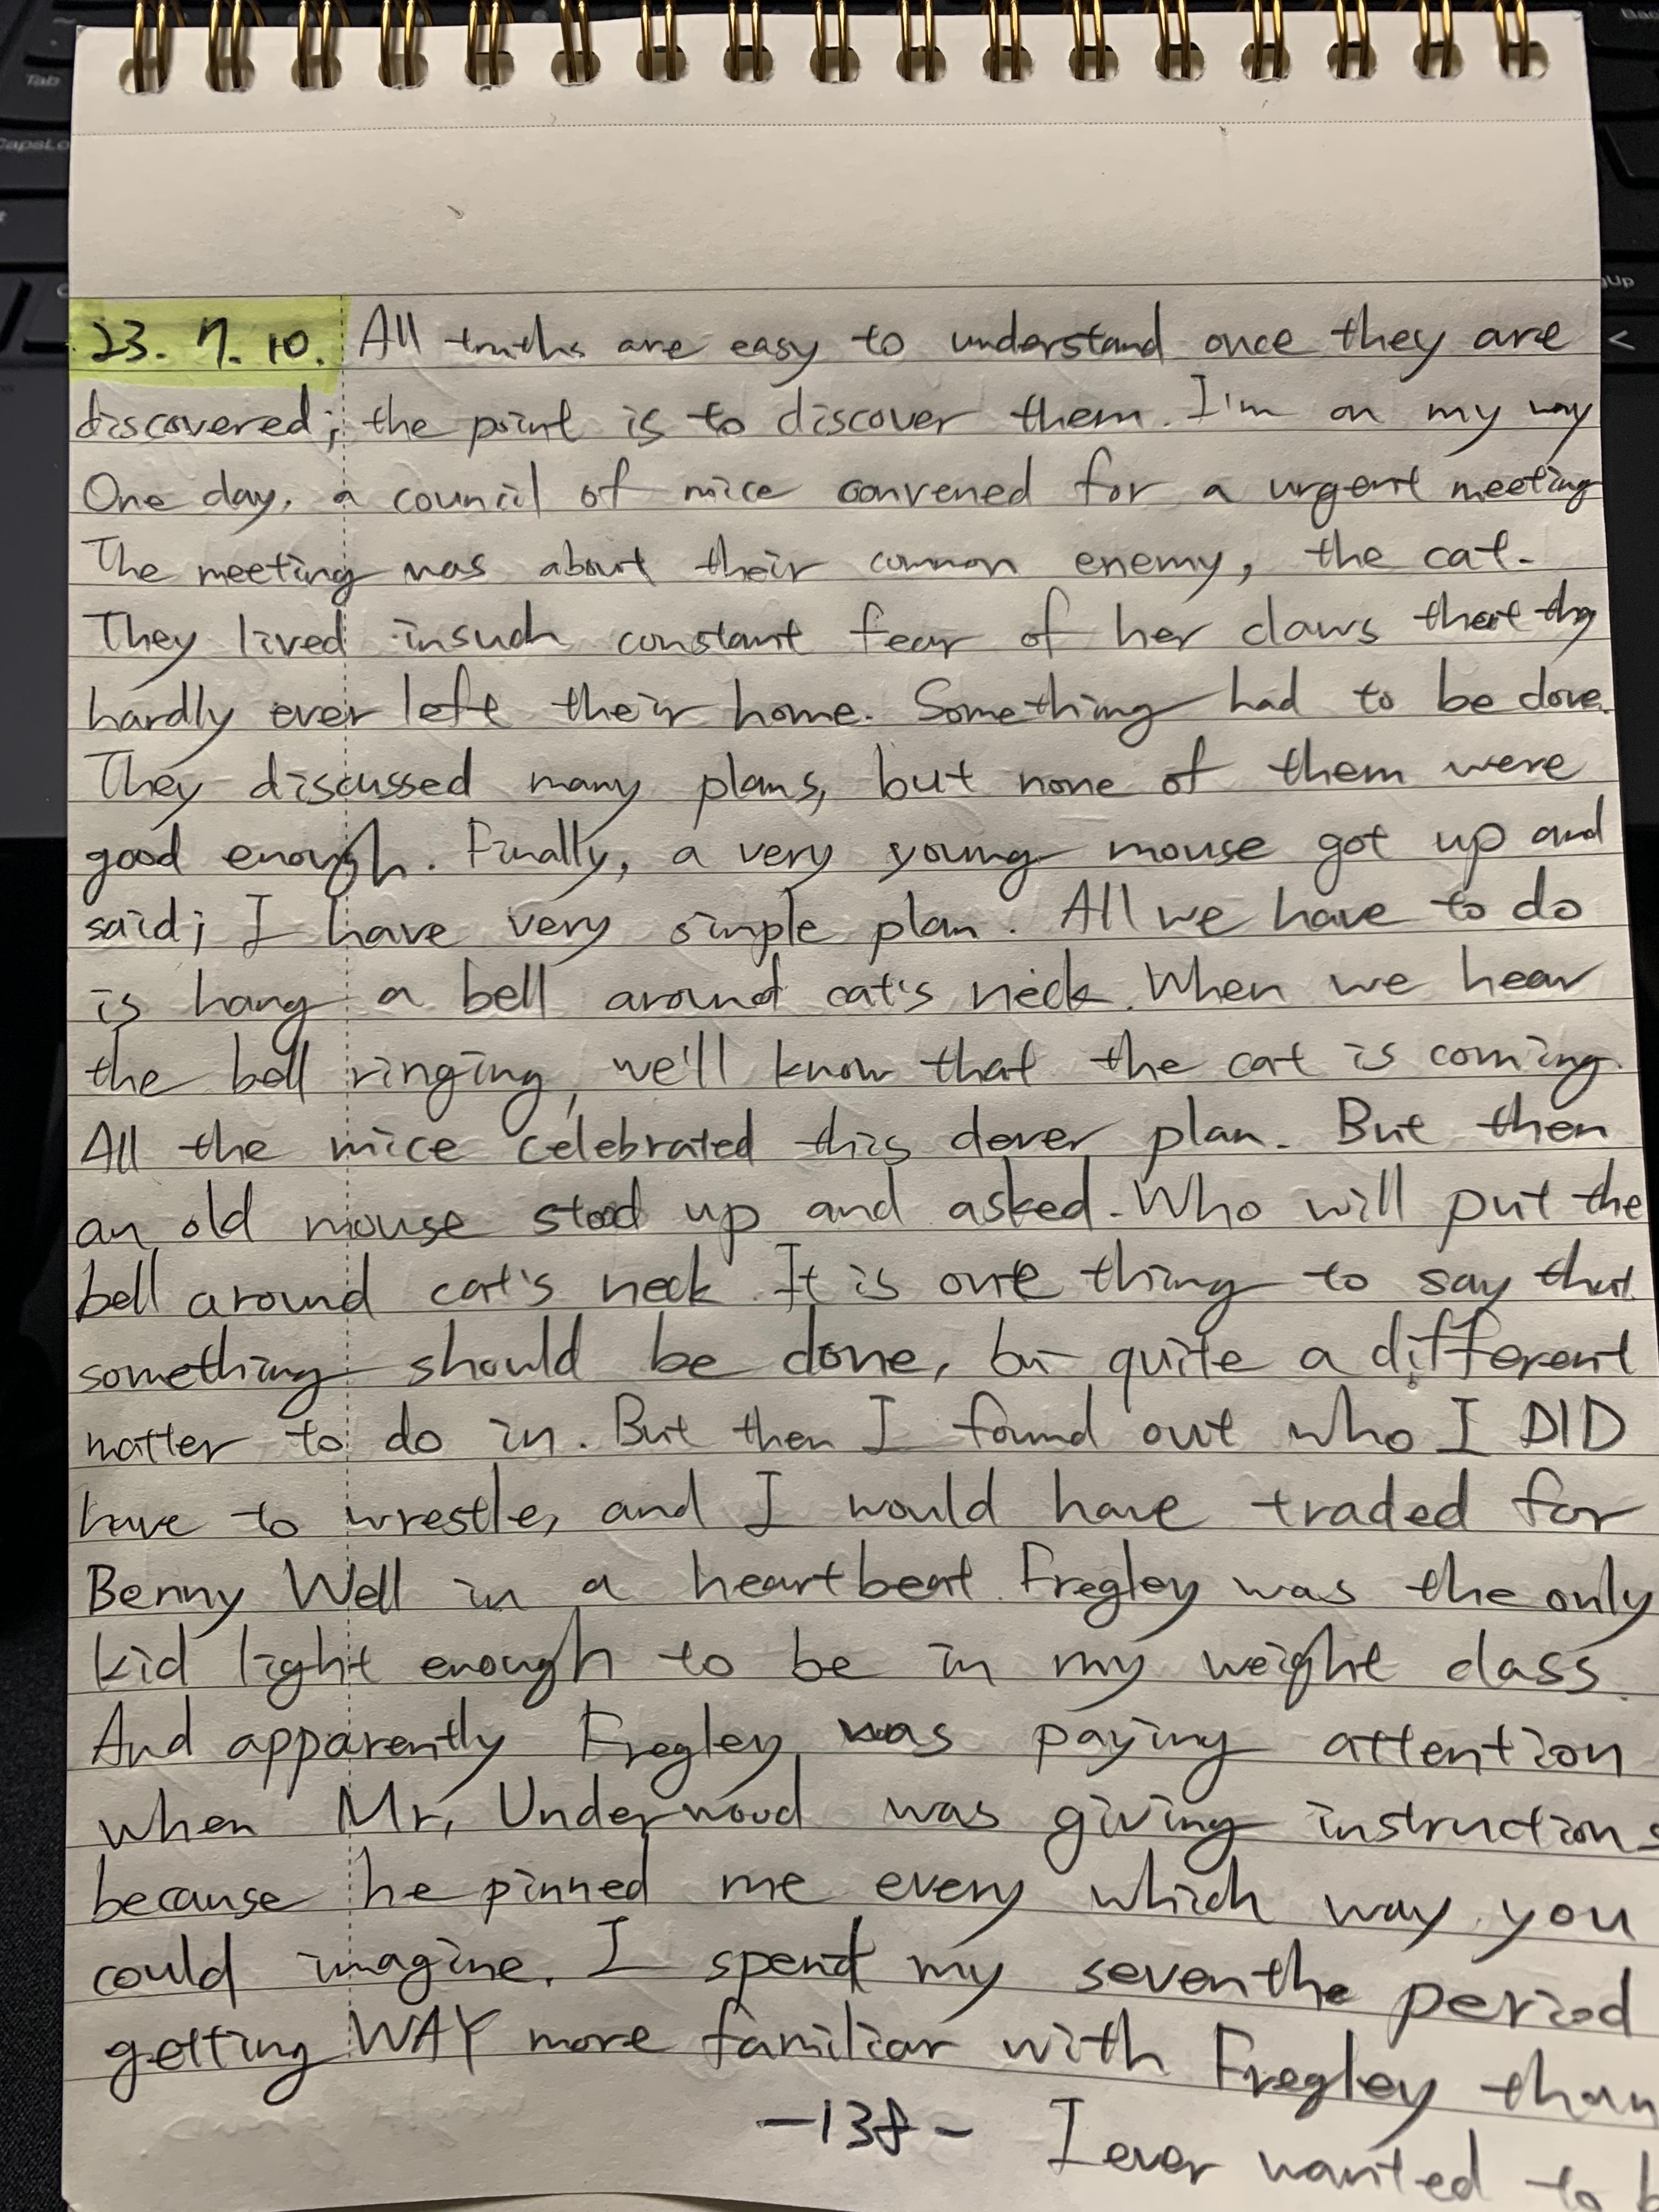 23. 7. 10. All truths are easy to understand once they are
discovered; the point is to discover them. I'm on my way
One day, a council of mice convened for a urgent meeting
The meeting was about their common enemy, the cat.
They lived insuch constant fear of her claws that they
hardly ever left their home. Something had to be done.
They discussed many plans, but none of them were
good enough. Finally, a very young mouse got up and
said; I have very simple plan. All we have to do
is hang a bell around cat's neck. When we hear
the bell ringing, we'll know that the cat is coming.
All the mice celebrated this clever plan. But then
an old mouse stood up and asked. Who will put the
bell around cat's neck It is one thing to say that
something should be done, but quite a different
matter to do in. But then I found out who I DID
have to wrestle, and I would have traded for
Benny Well in a heartbeat. Fregley was the only
kid light enough to be in my weight class.
And apparently Fregley was paying attention
when Mr, Underwood was giving instructions
because he pinned me every which way you
could imagine. I spent my seventhe period
getting WAY more familiar with Fregley than
-138- I ever wanted to b